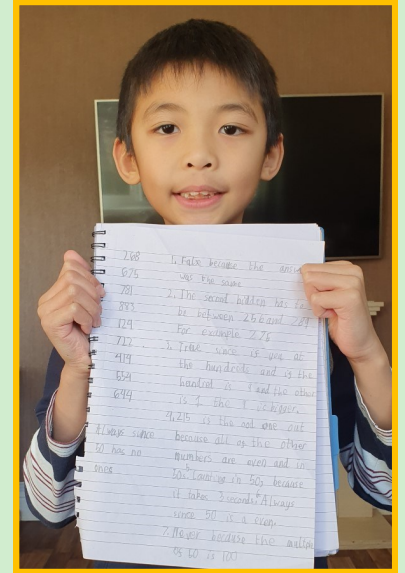 268
675
781
893
129
717
419
654
644
Always since
50 has no
ones
1. False because the
was the same
2. The second hidden has to
be between 256 and
For example 276
3. True since if you at
the hundreds and if the
hundred is and the other
is the is bigger.
4, 215 is the odd one out
because all of the other
numbers are even and in
50s. 5 Counting in 50s because
it takes seconds. 6 Always
since 50 is a even.
7. Never because the multiple
of 50 is 100